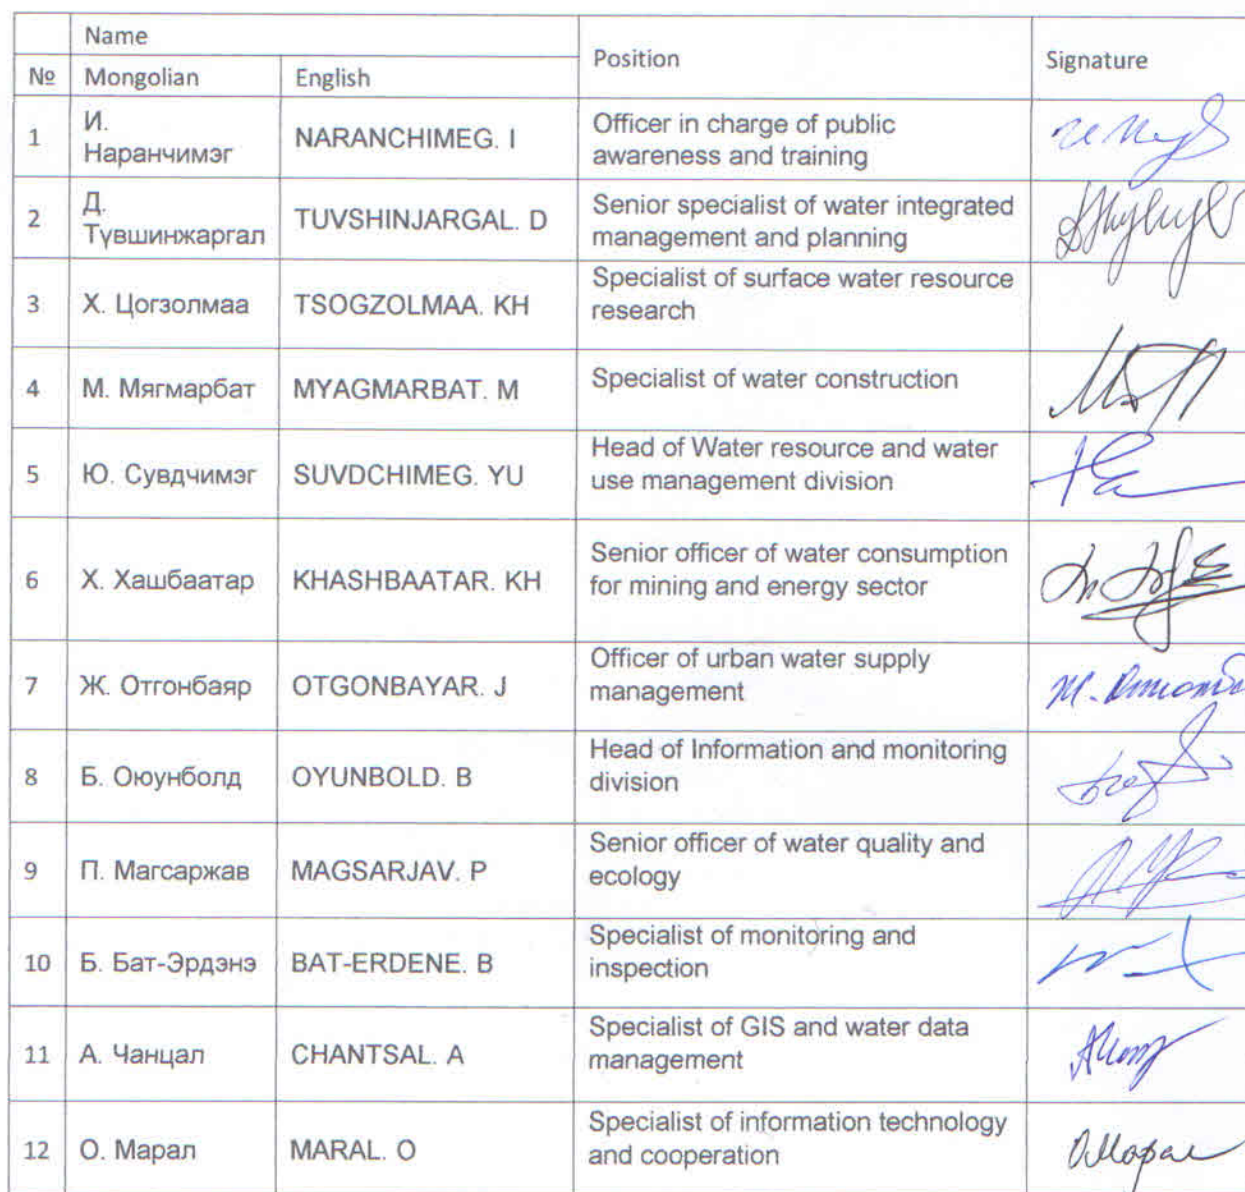 Name
Position
Signature
№
Mongolian
English
1
И.
Наранчимэг
NARANCHIMEG. I
Officer in charge of public
awareness and training
2
Д.
Түвшинжаргал
TUVSHINJARGAL. D
Senior specialist of water integrated
management and planning
3
Х. Цогзолмаа
TSOGZOLMAA. KH
Specialist of surface water resource
research
4
М. Мягмарбат
MYAGMARBAT. M
Specialist of water construction
5
Ю. Сувдчимэг
SUVDCHIMEG. YU
Head of Water resource and water
use management division
6
Х. Хашбаатар
KHASHBAATAR. KH
Senior officer of water consumption
for mining and energy sector
7
Ж. Отгонбаяр
OTGONBAYAR. J
Officer of urban water supply
management
8
Б. Оюунболд
OYUNBOLD. B
Head of Information and monitoring
division
9
П. Магсаржав
MAGSARJAV. P
Senior officer of water quality and
ecology
10
Б. Бат-Эрдэнэ
BAT-ERDENE. B
Specialist of monitoring and
inspection
11
А. Чанцал
CHANTSAL. A
Specialist of GIS and water data
management
12
О. Марал
MARAL. O
Specialist of information technology
and cooperation
О.Марал